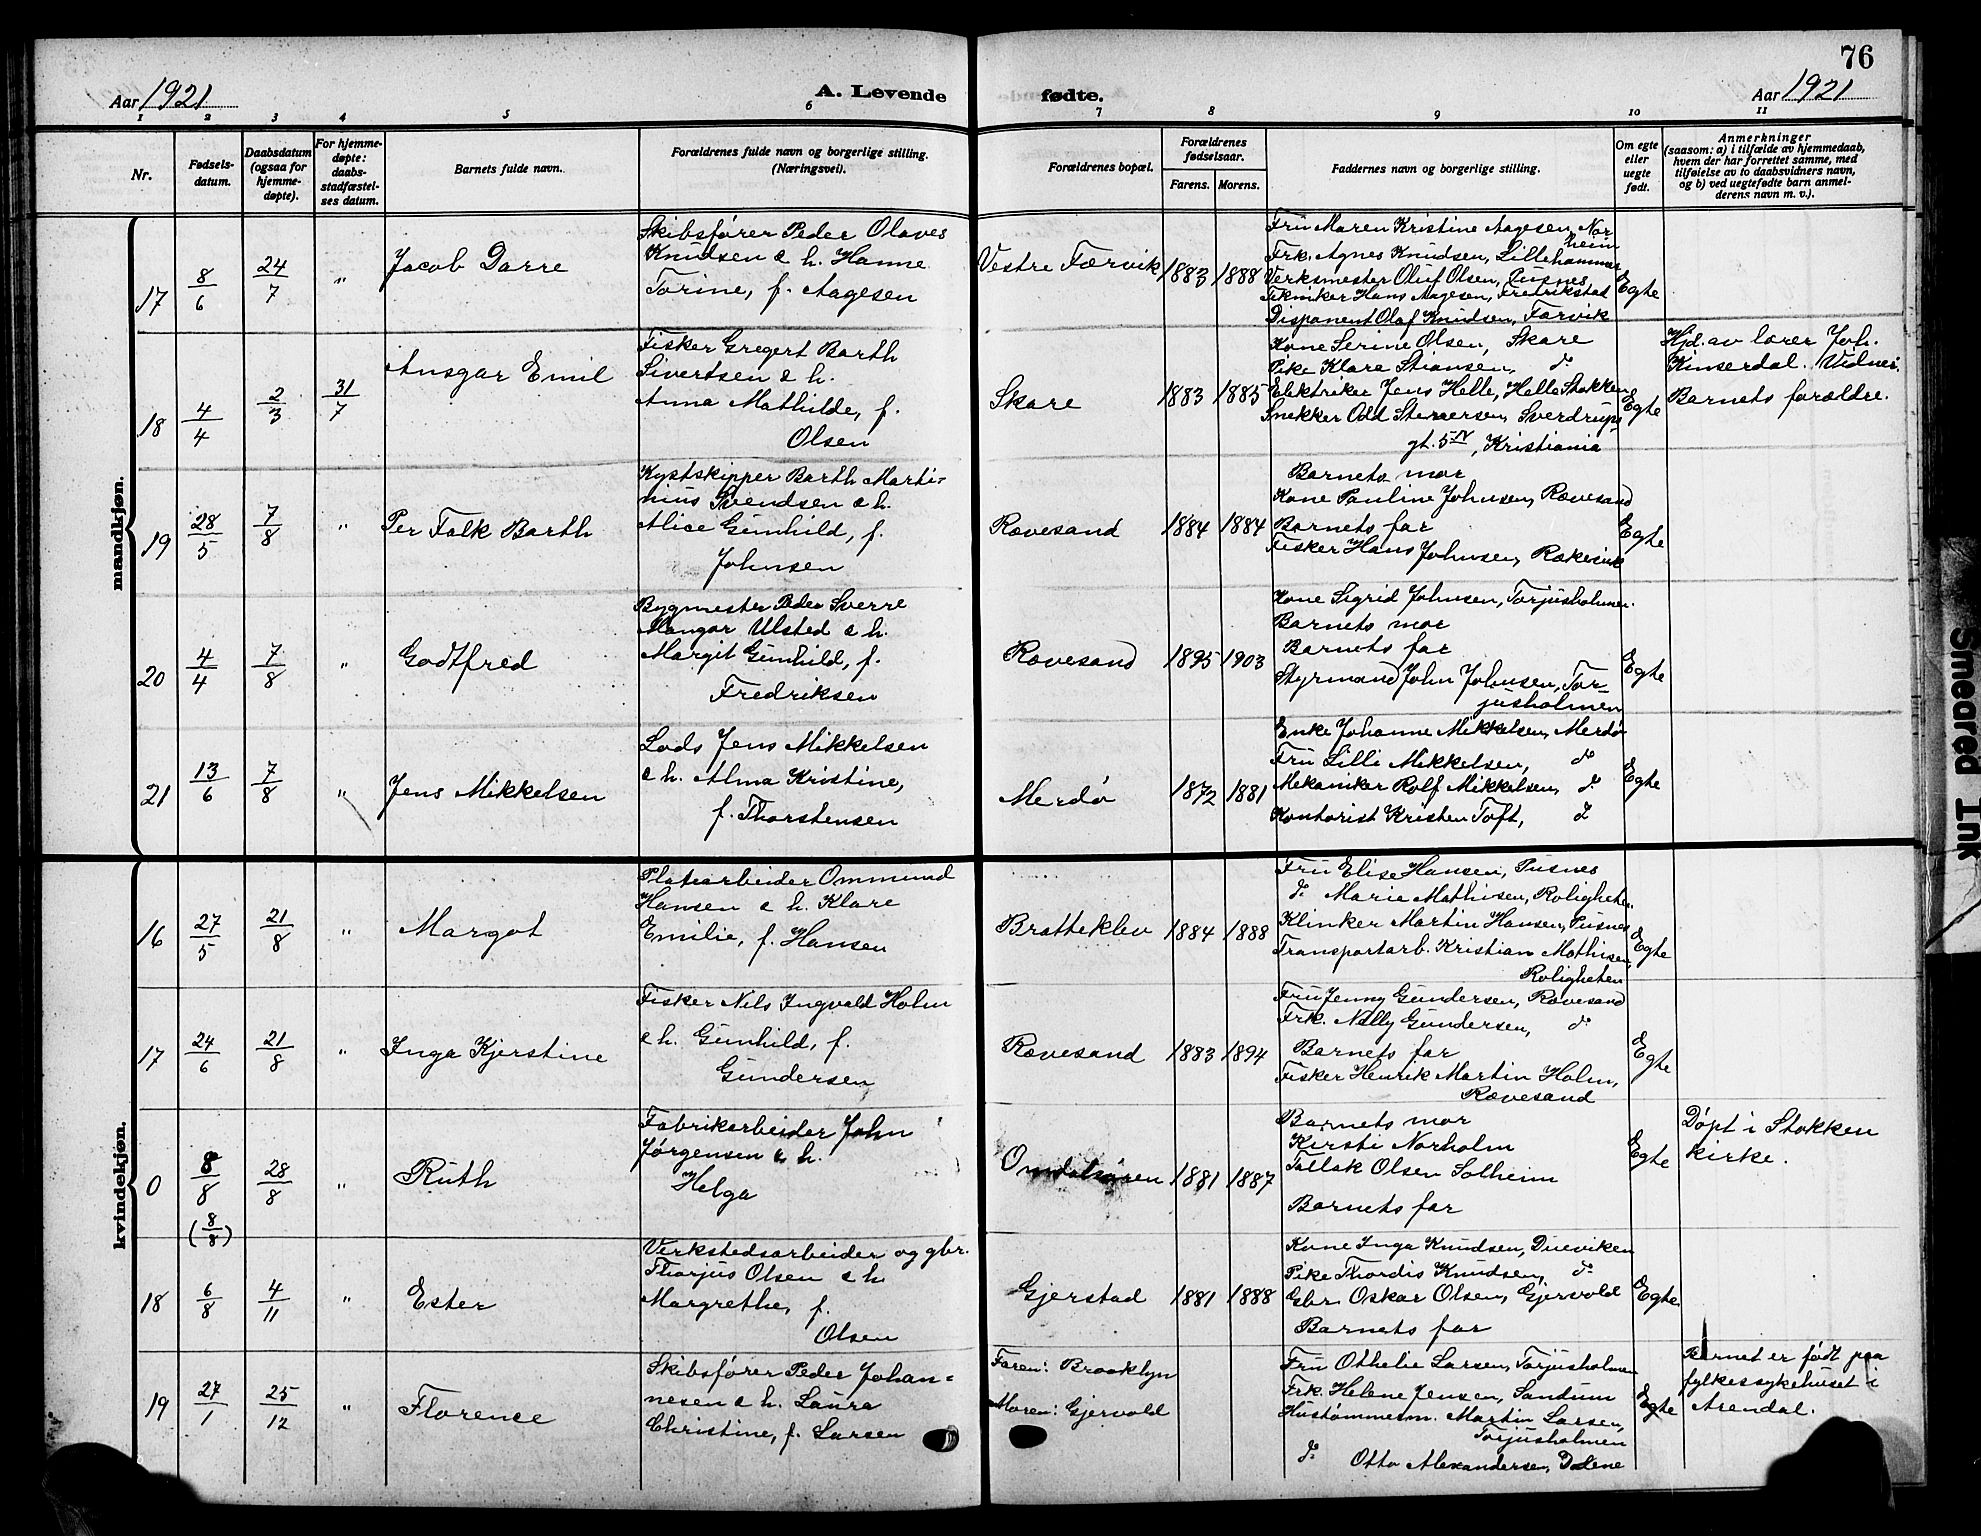 76
Aar 1921
A. Levende
fødte.
Aar 1921
1 2 3 4 5 6 7 8 9 10 11
Nr.
Fødsels-
datum.
Daabsdatum
(ogsaa for
hjemme-
døpte).
For hjemme-
døpte:
daabs-
stadfæstel-
ses datum.
Barnets fulde navn.
Forældrenes fulde navn og borgerlige stilling.
(Næringsvei).
Forældrenes bopæl.
Forældrenes
fødselsaar.
Farens. Morens.
Faddernes navn og borgerlige stilling.
Om egte
eller
uegte
født.
Anmerkninger
(saasom: a) i tilfælde av hjemmedaab,
hvem der har forrettet samme, med
tilføielse av to daabsvidners navn,
og b) ved uegtefødte barn anmel-
derens navn m. v.).
mandkjøn.
17
8/6
24/7
"
Jacob Darre
Skibsfører Peder Olaves
Knudsen & h. Hanne
Torine, f. Aagesen
Vestre Færvik
1883 1888
Fru Maren Kristine Aagesen, Nor
heim
Frk. Agnes Knudsen, Lillehammer
Verksmester Oluf Olsen, Pusnes
Tekniker Hans Aagesen, Fredrikstad
Disponent Olaf Knudsen, Færvik
Egte
18
4/4
2/3
31/7
Ansgar Emil
Fisker Gregert Barth
Sivertsen & h.
Anna Mathilde, f.
Olsen
Skare
1883 1885
Kone Serine Olsen, Skare
Pike Klara Stiansen, do
Elektriker Jens Helle, Helle Stokken
Snekker Odd Sverdrups
gt. 5 IV, Kristiania
Egte
Hjd. av lærer Joh.
Kinserdal. Vidner:
Barnets forældre.
19
28/5
7/8
"
Per Falk Barth
Kystskipper Barth Marti-
nius Svendsen & h.
Alice Gunhild, f.
Johnsen
Rævesand
1884 1884
Barnets mor
Kone Pauline Johnsen, Rævesand
Barnets far
Fisker Hans Johnsen, Rækevik
Egte
20
4/4
7/8
"
Godtfred
Bygmester Peder Sverre
Mangor Ulsted & h.
Margit Gunhild, f.
Fredriksen
Rævesand
1895 1903
Kone Sigrid Johnsen, Torjusholmen.
Barnets mor
Barnets far
Styrmand John Johnsen, Tor-
jusholmen
Egte
21
13/6
7/8
"
Jens Mikkelsen
Lods Jens Mikkelsen
& h. Alma Kristine,
f. Thorstensen
Merdø
1872 1881
Enke Johanne Mikkelsen, Merdø
Fru Lilli Mikkelsen, do
Mekaniker Rolf Mikkelsen, do
Kontorist Kristen Toft, do
Egte
kvindekjøn.
16
27/5
21/8
"
Margot
Platearbeider Ommund
Hansen & h. Klara
Emilie, f. Hansen
Bratteklev
1884 1888
Fru Elise Hansen, Pusnes
do Marie Mathisen, Roligheten.
Klinker Martin Hansen, Pusnes
Transportarb. Kristian Mathisen,
Roligheten
Egte
17
24/6
21/8
"
Inga Kjerstine
Fisker Nils Ingvald Holm
& h. Gunhild, f.
Gundersen
Rævesand
1883 1894
Fru Jenny Gundersen, Rævesand
Frk. Nelly Gundersen, do
Barnets far
Fisker Henrik Martin Holm,
Rævesand
Egte
0
8/8
(8/8)
28/8
"
Ruth
Fabrikarbeider John
Jørgensen & h.
Helga
1881 1887
Barnets mor
Kirsti Norholm
Tallak Olsen Solheim
Barnets far
Egte
Døpt i Stokken
kirke.
18
6/8
4/11
"
Ester
Verkstedsarbeider og gbr.
Thorjus Olsen & h.
Margrethe, f.
Olsen
Gjerstad
1881 1888
Kone Inga Knudsen, Dueviken
Pike Thordis Knudsen, do
Gbr. Oskar Olsen, Gjervold
Barnets far
Egte
19
27/1
25/12
"
Florence
Skibsfører Peder Johan-
nesen & h. Laura
Christine, f. Larsen
Faren: Brooklyn
Moren: Gjervold
Fru Othelie Larsen, Torjusholmen
Frk. Helene Jensen, Sandum
Hustømmerm. Martin Larsen,
Torjusholmen
do Otto Alexandersen, Dalene
Egte
Barnet er født paa
fylkessykehuset i
Arendal.
Smeared Ink